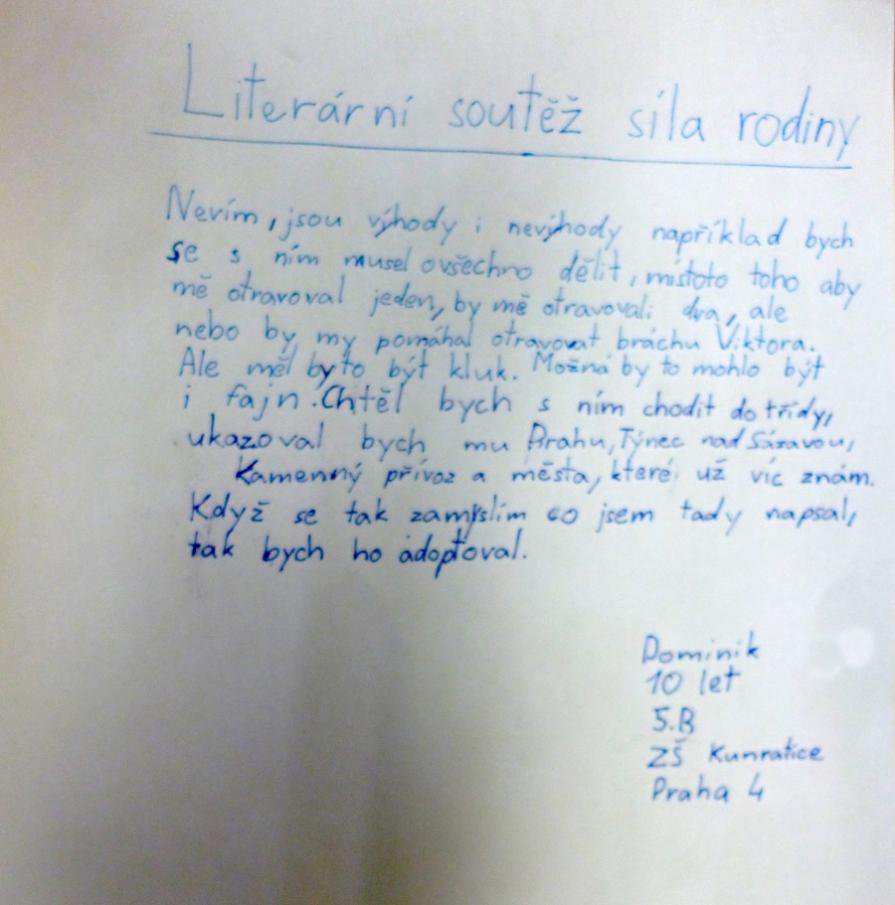 Literární soutěž síla rodiny
Nevím, jsou výhody i nevýhody například bych
se s ním musel ovšechno dělit, mistoto toho aby
mě otravoval jeden, by mě otravovali dva, ale
nebo by my pomáhal otravovat bráchu Viktora.
Ale měl by to být kluk. Možná by to mohlo být
i fajn. Chtěl bych s ním chodit do třídy,
ukazoval bych mu Prahu, Týnec nad Sázavou,
Kamenný přívoz a města, které už víc znám.
Když se tak zamyslím co jsem tady napsal,
tak bych ho adoptoval.
Dominik
10 let
5.B
ZŠ Kunratice
Praha 4